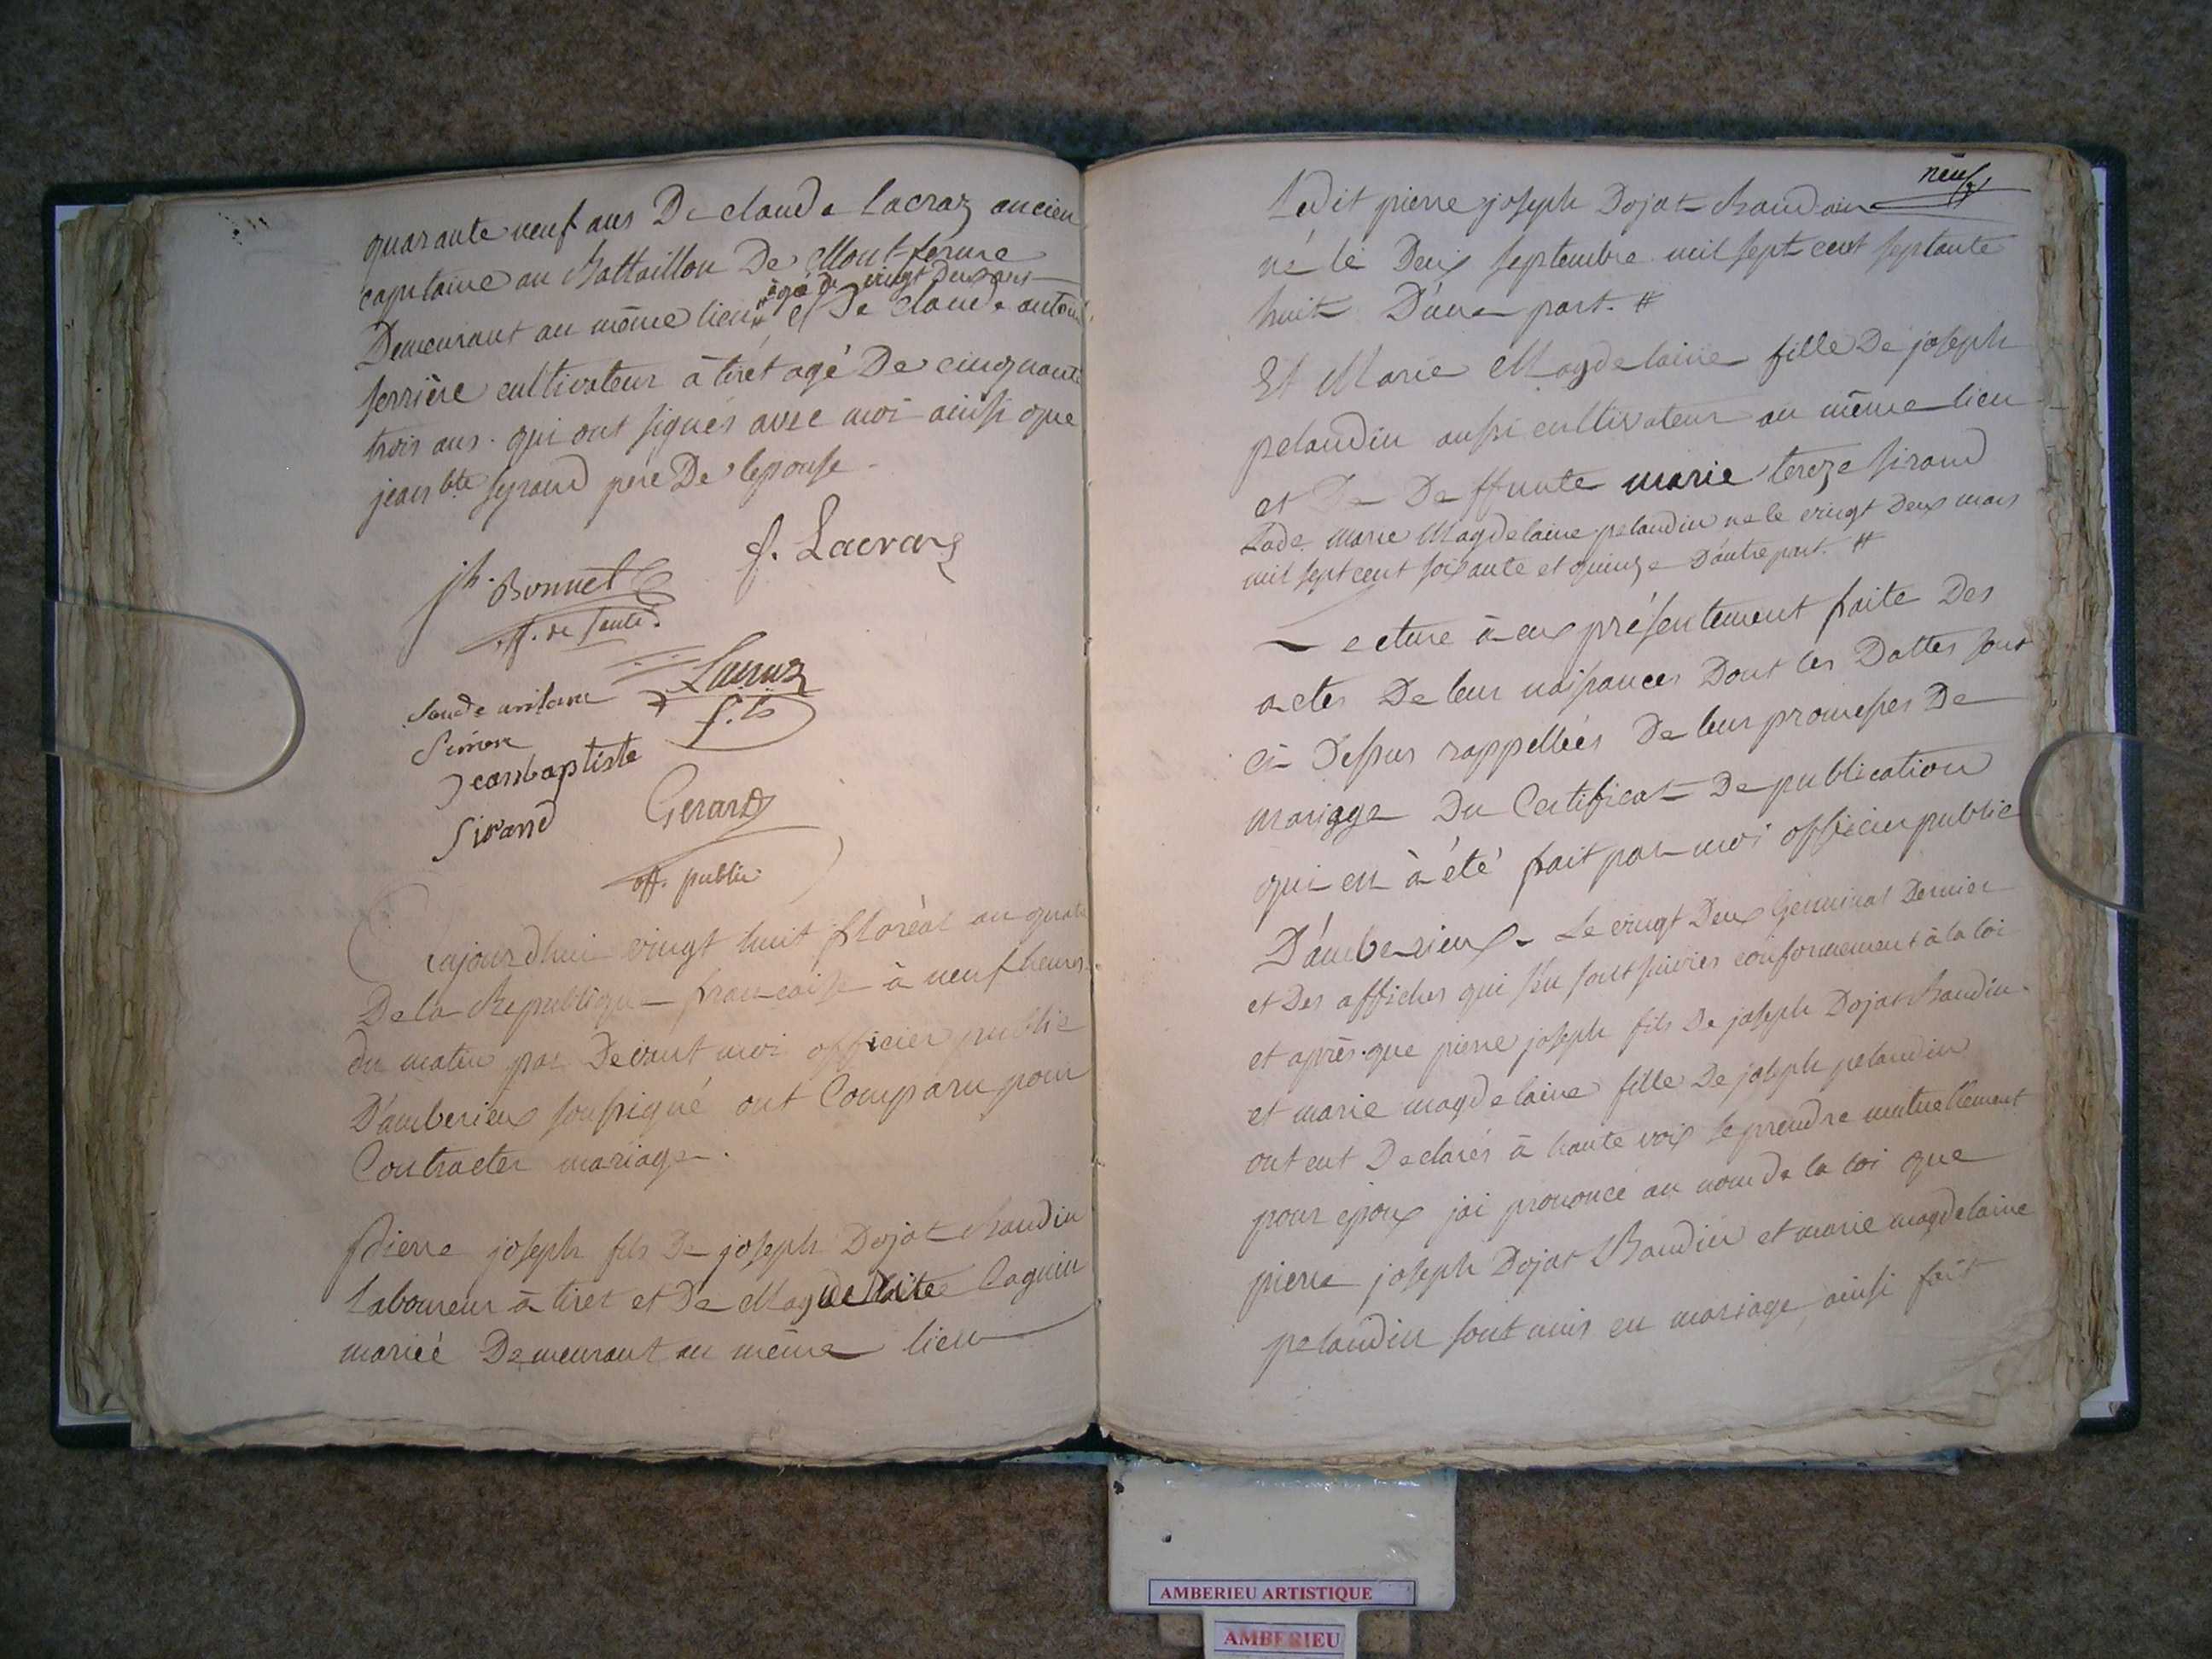 quarante neuf ans De claude Lacraz ancien
capitaine au Battaillon De Mont-ferme
âgé de vingt deux ans
Demeurant au même lieu et De claude antoine
serrière cultivateur à tiret agé De cinquante
trois ans. qui ont signés avec moi ainsi que
jean bte syraud pere De lepouse
jh. Bonnet
f. Lacraz
off. de santé.
Lacraz
f. ls
Simon
Jeanbaptiste
Sirand
Gerard
off. public
Cejourdhui vingt huit floréal an quatre
De la Republique francaise à neuf heures
du matin par Devant moi officier public
D'amberieux soussigné ont Comparu pour
Contracter mariage.
Pierre joseph fils De joseph Dojat Baudin
Laboureur à tiret et De Magdelaine Caguin
mariée Demeurant au même lieu
neuf
Ledit pierre joseph Dojat-Baudoin
né le Deux septembre mil sept cent septante
huit D'une part. #
Et Marie Magdelaine fille De joseph
pelaudin aussi cultivateur au même lieu
et De Deffunte marie tereze siraud
Lade. marie Magdelaine pelaudin né le vingt Deux mars
mil sept cent soixante et quinze D'autre part. #
Lecture à eux présentement faite Des
actes De leur naissances Dont les Dattes sont
ci-Dessus rappellées De leur promesses De
mariage Du Certificat De publication
qui en à été fait par moi officier public
D'amberieux. Le vingt Deux Germinal Dernier
et Des affiches qui s'en sont suivies conformement à la loi
et après que pierre joseph fils De joseph Dojat Baudin
et marie magdelaine fille De joseph pelaudin
ont eut Declarés à haute voix se prendre mutuellement
pour époux jai prononcé au nom de la loi que
pierre joseph Dojat Baudin et marie magdelaine
pelaudin sont unis en mariage, ainsi fait
AMBERIEU ARTISTIQUE
AMBERIEU